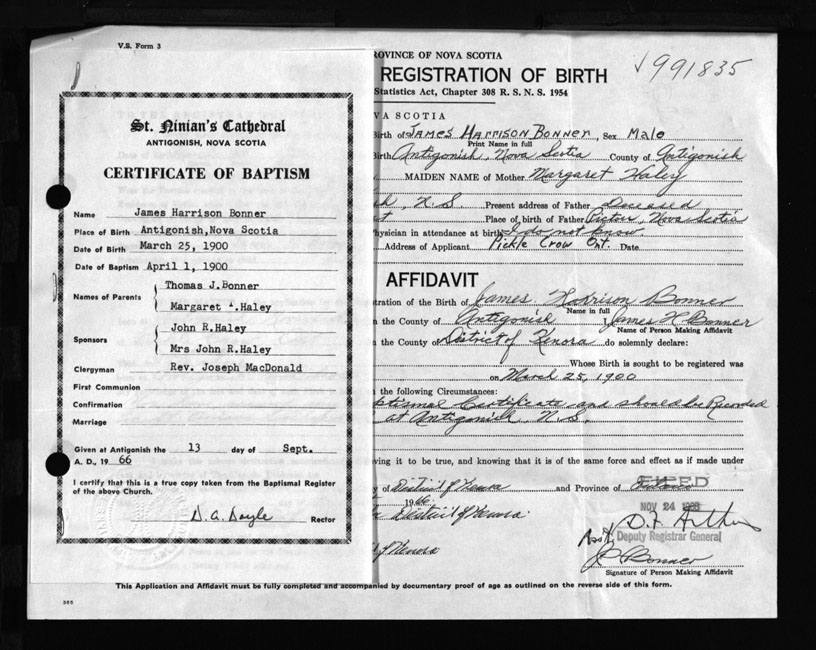 V.S. Form 3
St. Ninian's Cathedral
ANTIGONISH, NOVA SCOTIA
CERTIFICATE OF BAPTISM
Name James Harrison Bonner
Place of Birth Antigonish,Nova Scotia
Date of Birth March 25, 1900
Date of Baptism April 1, 1900
Names of Parents Thomas J.Bonner
Margaret A.Haley
Sponsors John R.Haley
Mrs John R.Haley
Clergyman Rev. Joseph MacDonald
First Communion
Confirmation
Marriage
Given at Antigonish the 13 day of Sept.
A. D., 19 66
I certify that this is a true copy taken from the Baptismal Register
of the above Church.
D.A. Doyle Rector
ROVINCE OF NOVA SCOTIA
REGISTRATION OF BIRTH
√991835
Statistics Act, Chapter 308 R. S. N. S. 1954
VA SCOTIA
Birth of JAMES HARRISON BONNER, Sex Male
Print Name in full
Birth Antigonish, Nova Scotia County of Antigonish
MAIDEN NAME of Mother Margaret Haley
sh, N.S. Present address of Father Deceased
st Place of birth of Father Pictou, Nova Scotia
hysician in attendance at birth I do not know.
Address of Applicant Pickle Crow Ont. Date
AFFIDAVIT
tration of the Birth of James Harrison Bonner
Name in full
n the County of Antigonish I, James H Bonner
Name of Person Making Affidavit
n the County of District of Kenora do solemnly declare:
Whose Birth is sought to be registered was
on March 25, 1900
the following Circumstances:
ptismal Certificate and should be Recorded
at Antigonish, N.S.
ving it to be true, and knowing that it is of the same force and effect as if made under
y of District of Kenora and Province of
1966
District of Kenora
FILED
NOV 24 1966
D.F. Arthur
Asst Deputy Registrar General
of Kenora
Bonner
Signature of Person Making Affidavit
This Application and Affidavit must be fully completed and accompanied by documentary proof of age as outlined on the reverse side of this form.